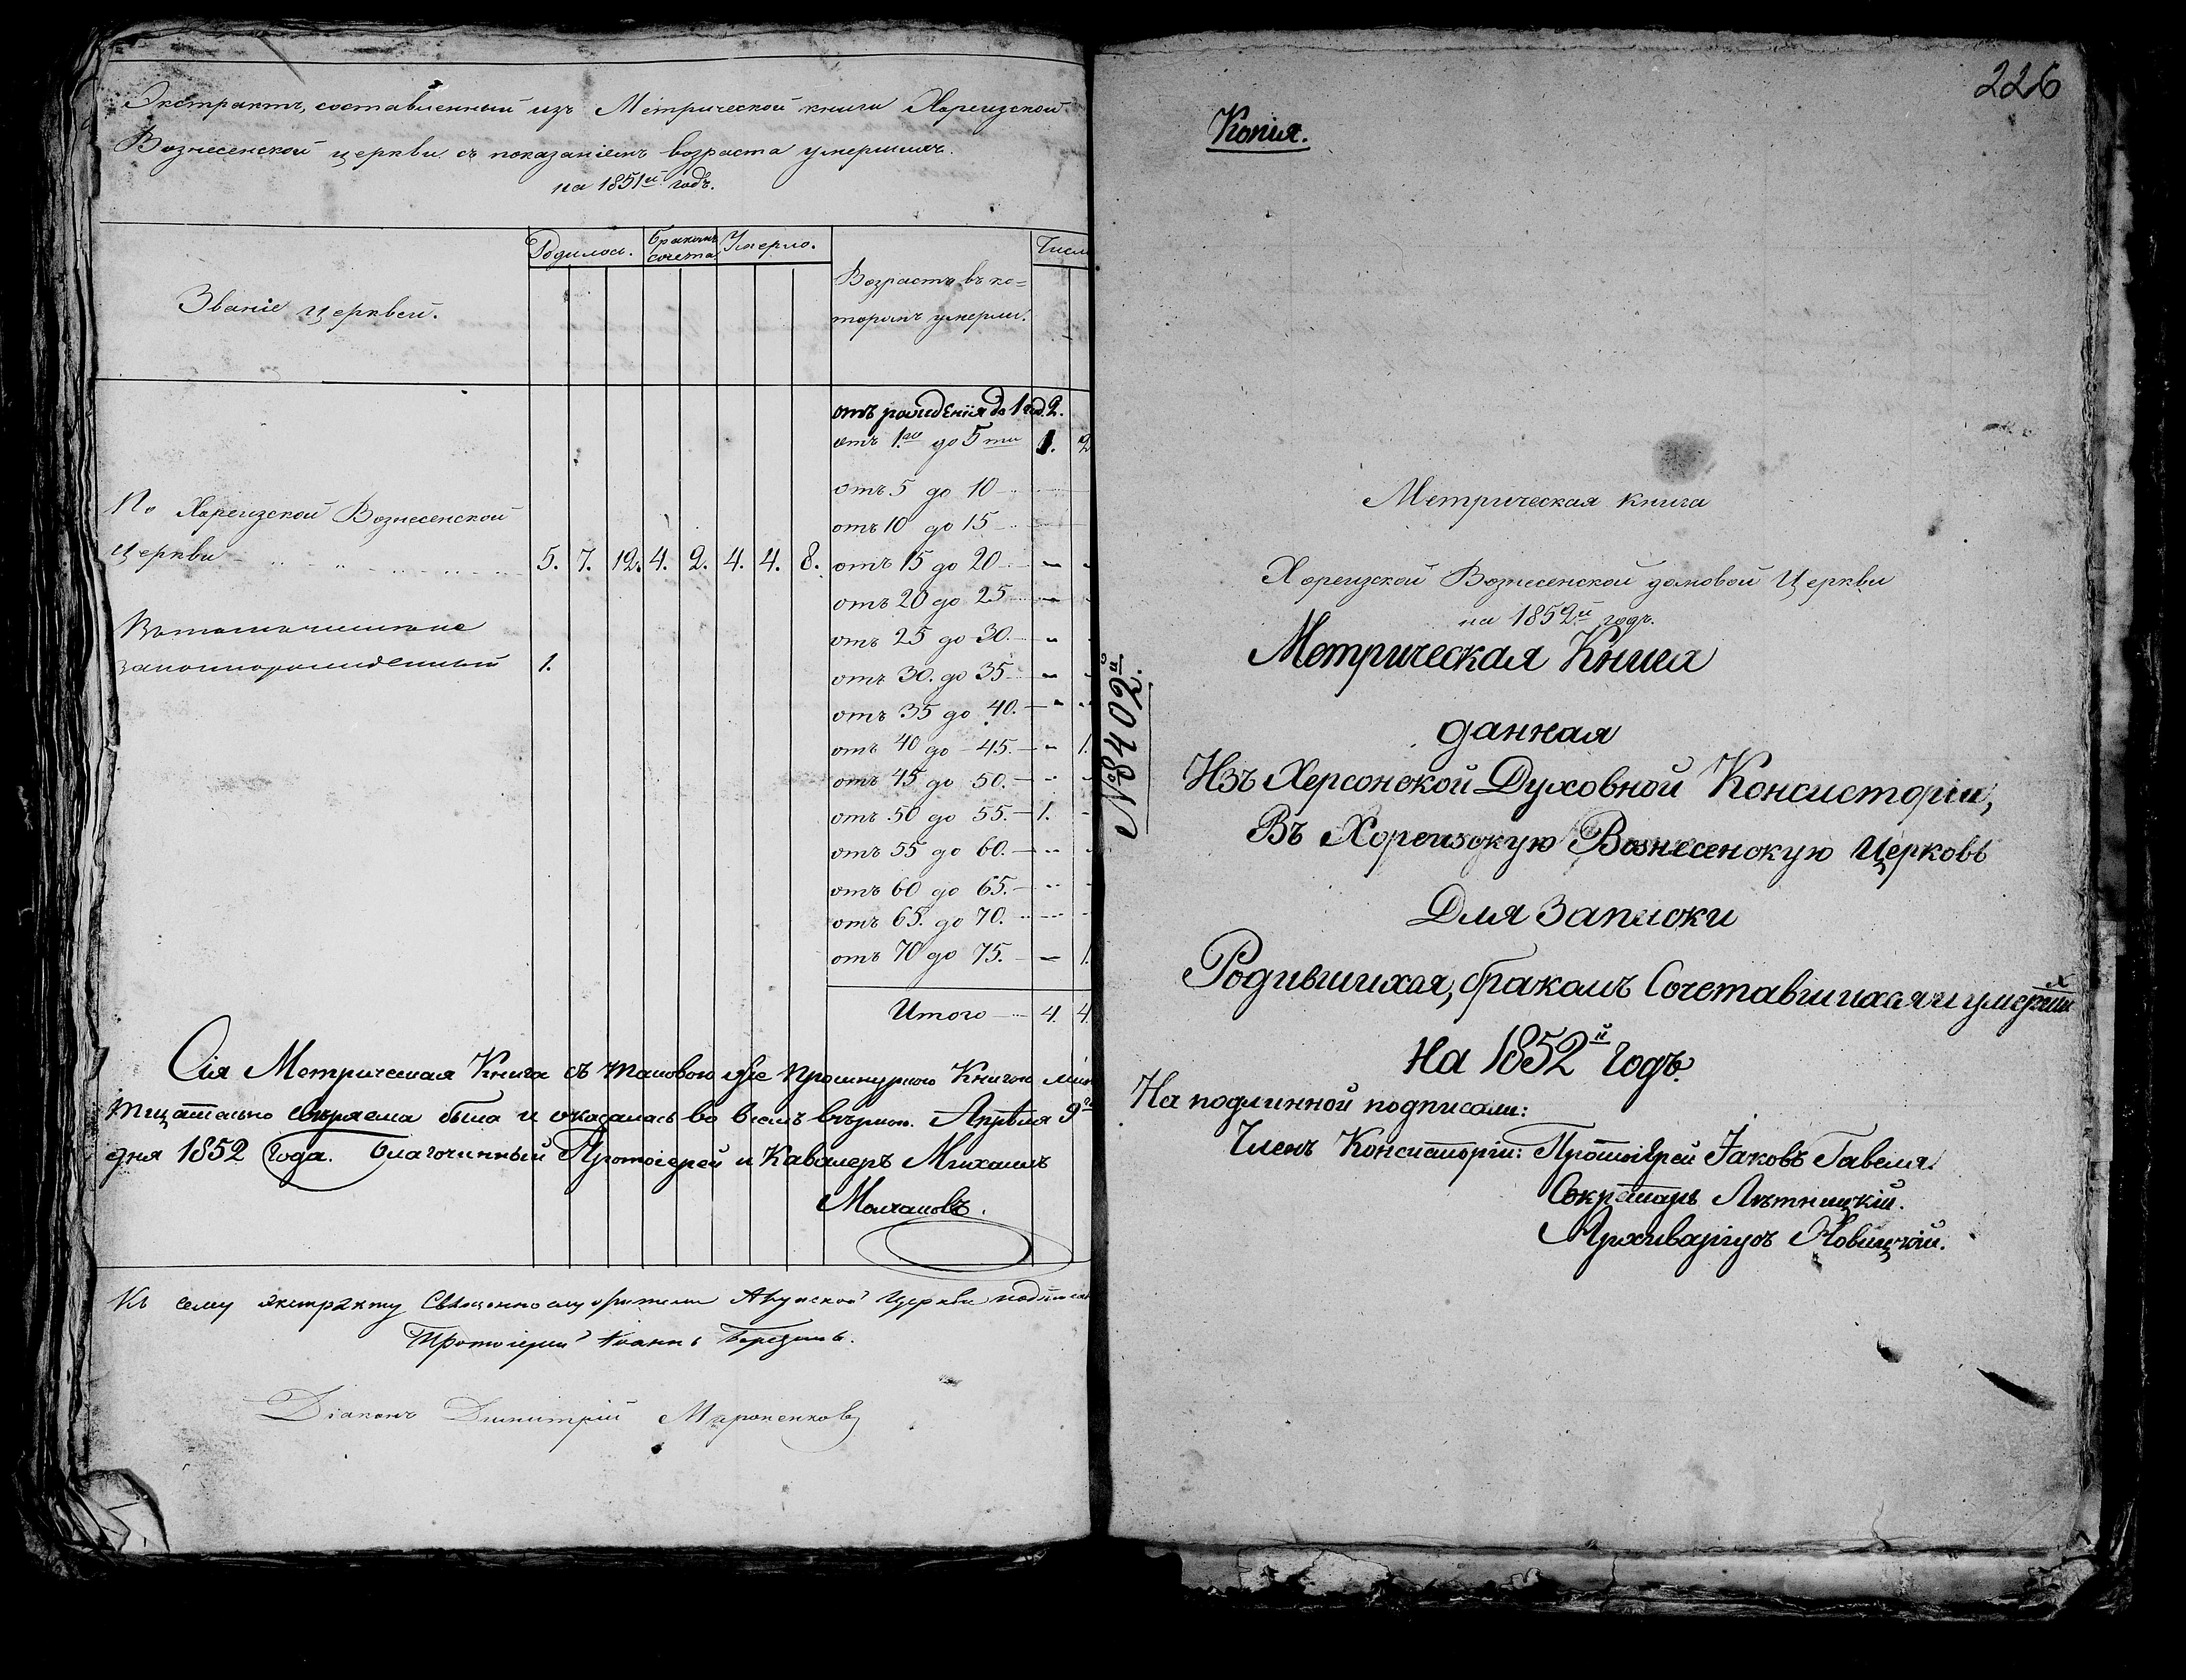 Экстрактъ, составленный изъ Метрической книги Хореизской
Вознесенской церкви съ показаніемъ возраста умершихъ.
на 1851й годъ.
Званіе церквей.
Родилось.
Бракомъ сочета.
Умерло.
Возрастъ въ ко=
торомъ умерли.
Числ
отъ рожденія до 1 год. 2.
отъ 1.го до 5 ти 1. 2
отъ 5 до 10
отъ 10 до 15
По Хореизской Вознесенской
Церкви 5. 7. 12. 4. 2. 4. 4. 8. отъ 15 до 20
отъ 20 до 25
отъ 25 до 30.
законнорожденный 1.
отъ 30. до 35
отъ 35 до 40.
отъ 40 до 45. 1.
отъ 45 до 50.
отъ 50 до 55. 1.
отъ 55 до 60.
отъ 60 до 65.
отъ 65. до 70.
отъ 70 до 75. 1.
Итого 4. 4.
Сія Метрическая Книга съ таковою же прошнурною Книгою
тщательно свѣряема была и оказалась во всемъ вѣрною. Апрѣля 9го
дня 1852 Года. Благочинный Протоіерей и Кавалеръ Михаилъ
Молчановъ.
Къ сему экстракту Священнослужители Церкви
Протоіерей Іоаннъ
Діаконъ Димитрій
226
Копія.
Метрическая книга
Хореизской Вознесенской домовой Церкви
на 1852й годъ.
№8402й.
Метрическая Книга
данная
Изъ Херсонской Духовной Консисторіи,
Въ Хореизскую Вознесенскую Церковь
Для Записки
Родившихся, бракомъ Сочетавшихся и умершихъ
На 1852й Годъ.
На подлинной подписали:
Членъ Консисторіи: Протоіерей Іаковъ Гавеля.
Секретарь Лѣтницкій.
Архиваріусъ Новицкій.